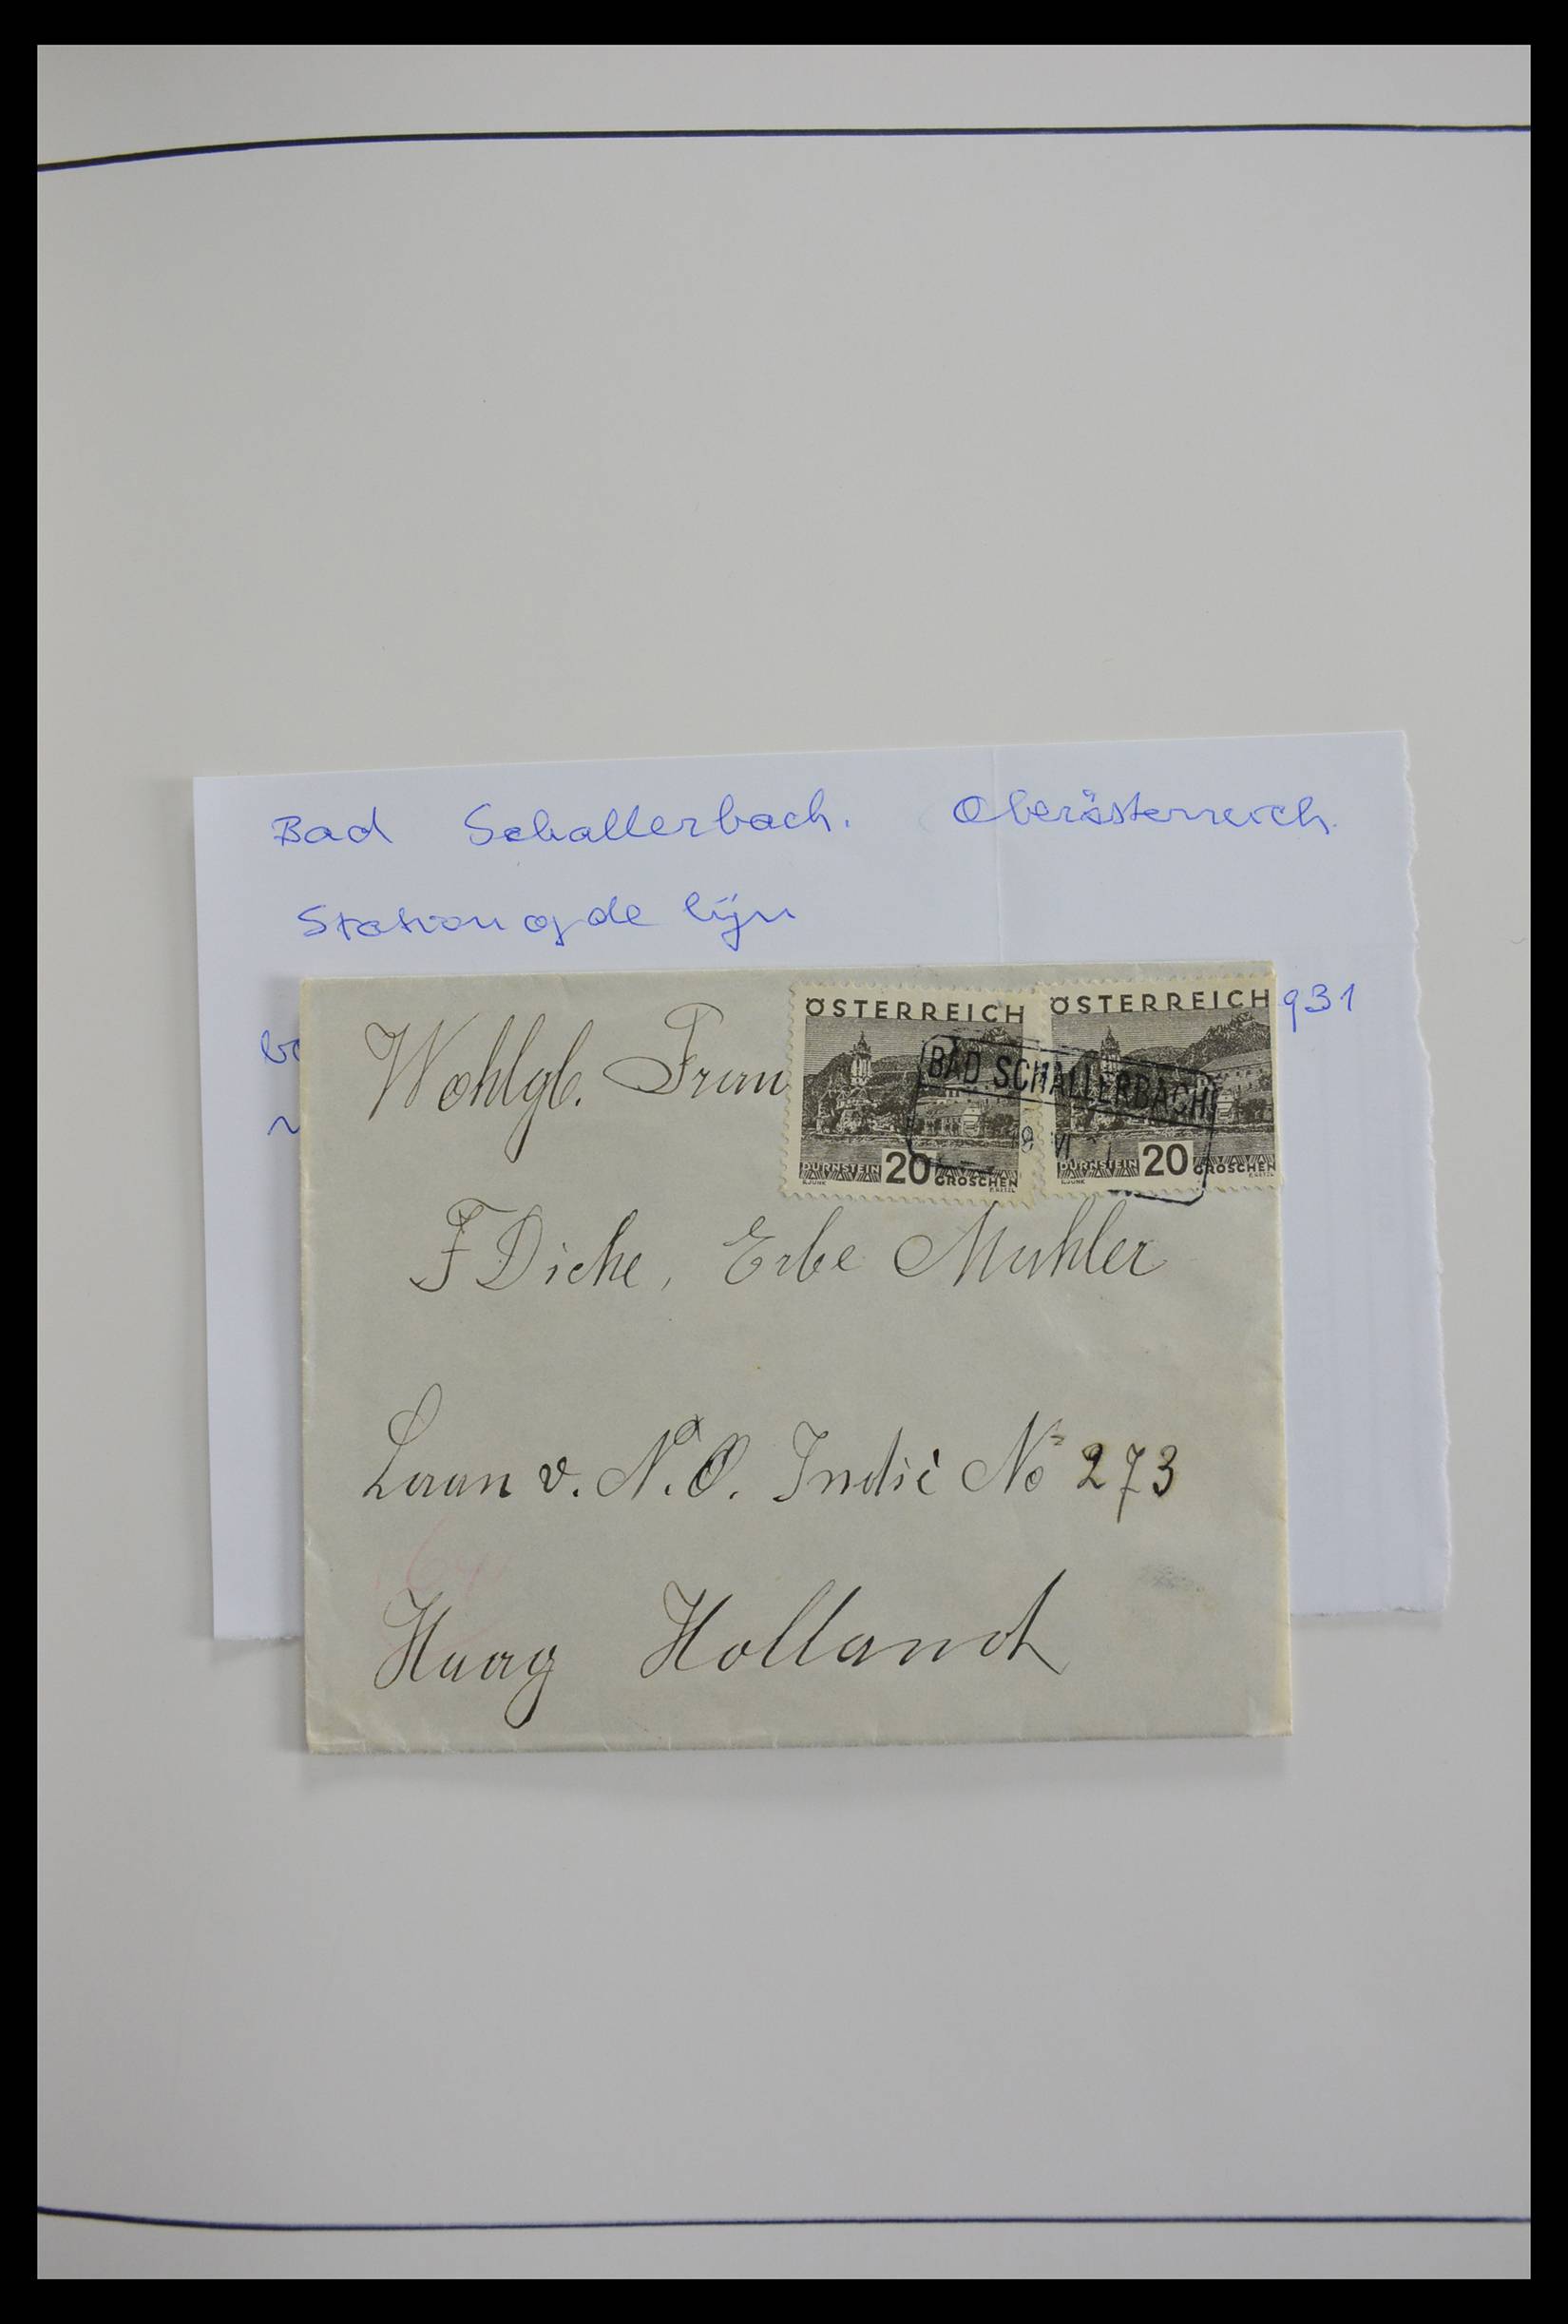 Bad Schallerbach. Oberösterreich.
Station op de lijn
931
Wohlgb. Frau
ÖSTERREICH ÖSTERREICH
BAD SCHALLERBACH
VI
DÜRNSTEIN 20 GROSCHEN DÜRNSTEIN 20 GROSCHEN
F Dicke, Erbe Muhler
Laan v. N.O. Indië No 273
Haag Holland